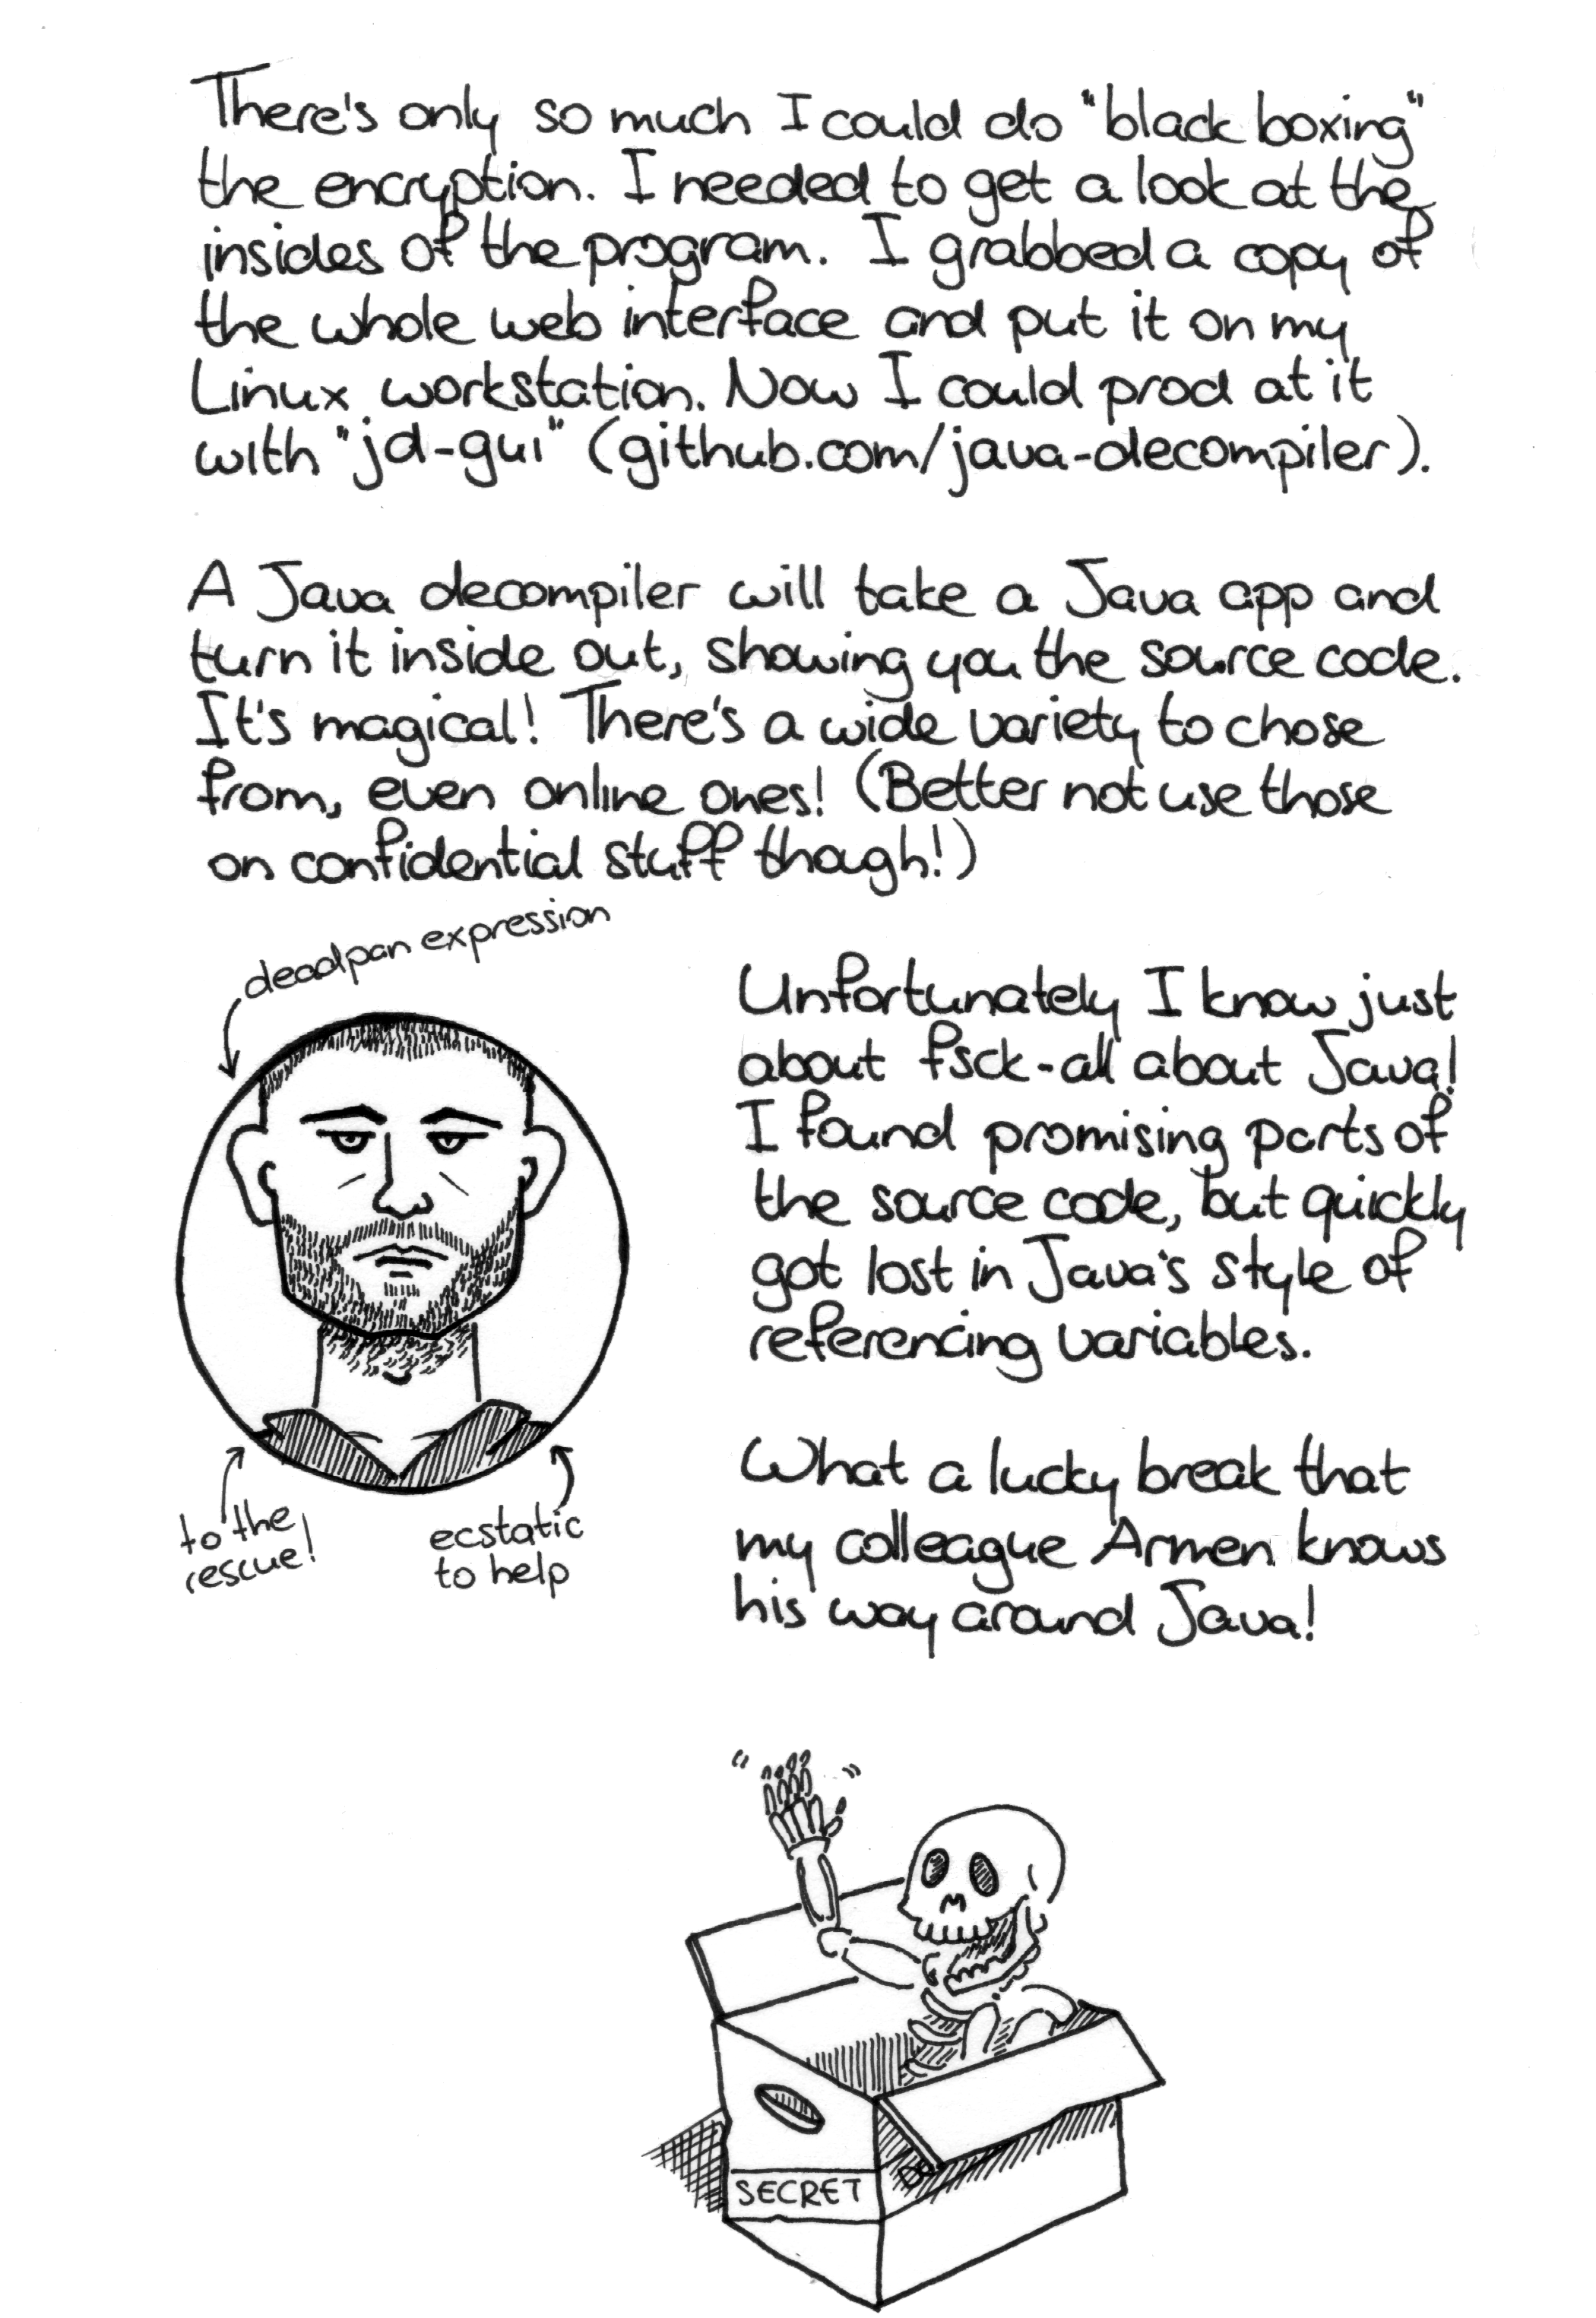 There's only so much I could do "black boxing"
the encryption. I needed to get a look at the
insides of the program. I grabbed a copy of
the whole web interface and put it on my
Linux workstation. Now I could prod at it
with "jd-gui" (github.com/java-decompiler).
A Java decompiler will take a Java app and
turn it inside out, showing you the source code.
It's magical! There's a wide variety to chose
from, even online ones! (Better not use those
on confidential stuff though!)
deadpan expression
Unfortunately I know just
about fsck-all about Java!
I found promising parts of
the source code, but quickly
got lost in Java's style of
referencing variables.
to the
rescue!
ecstatic
to help
What a lucky break that
my colleague Armen knows
his way around Java!
SECRET